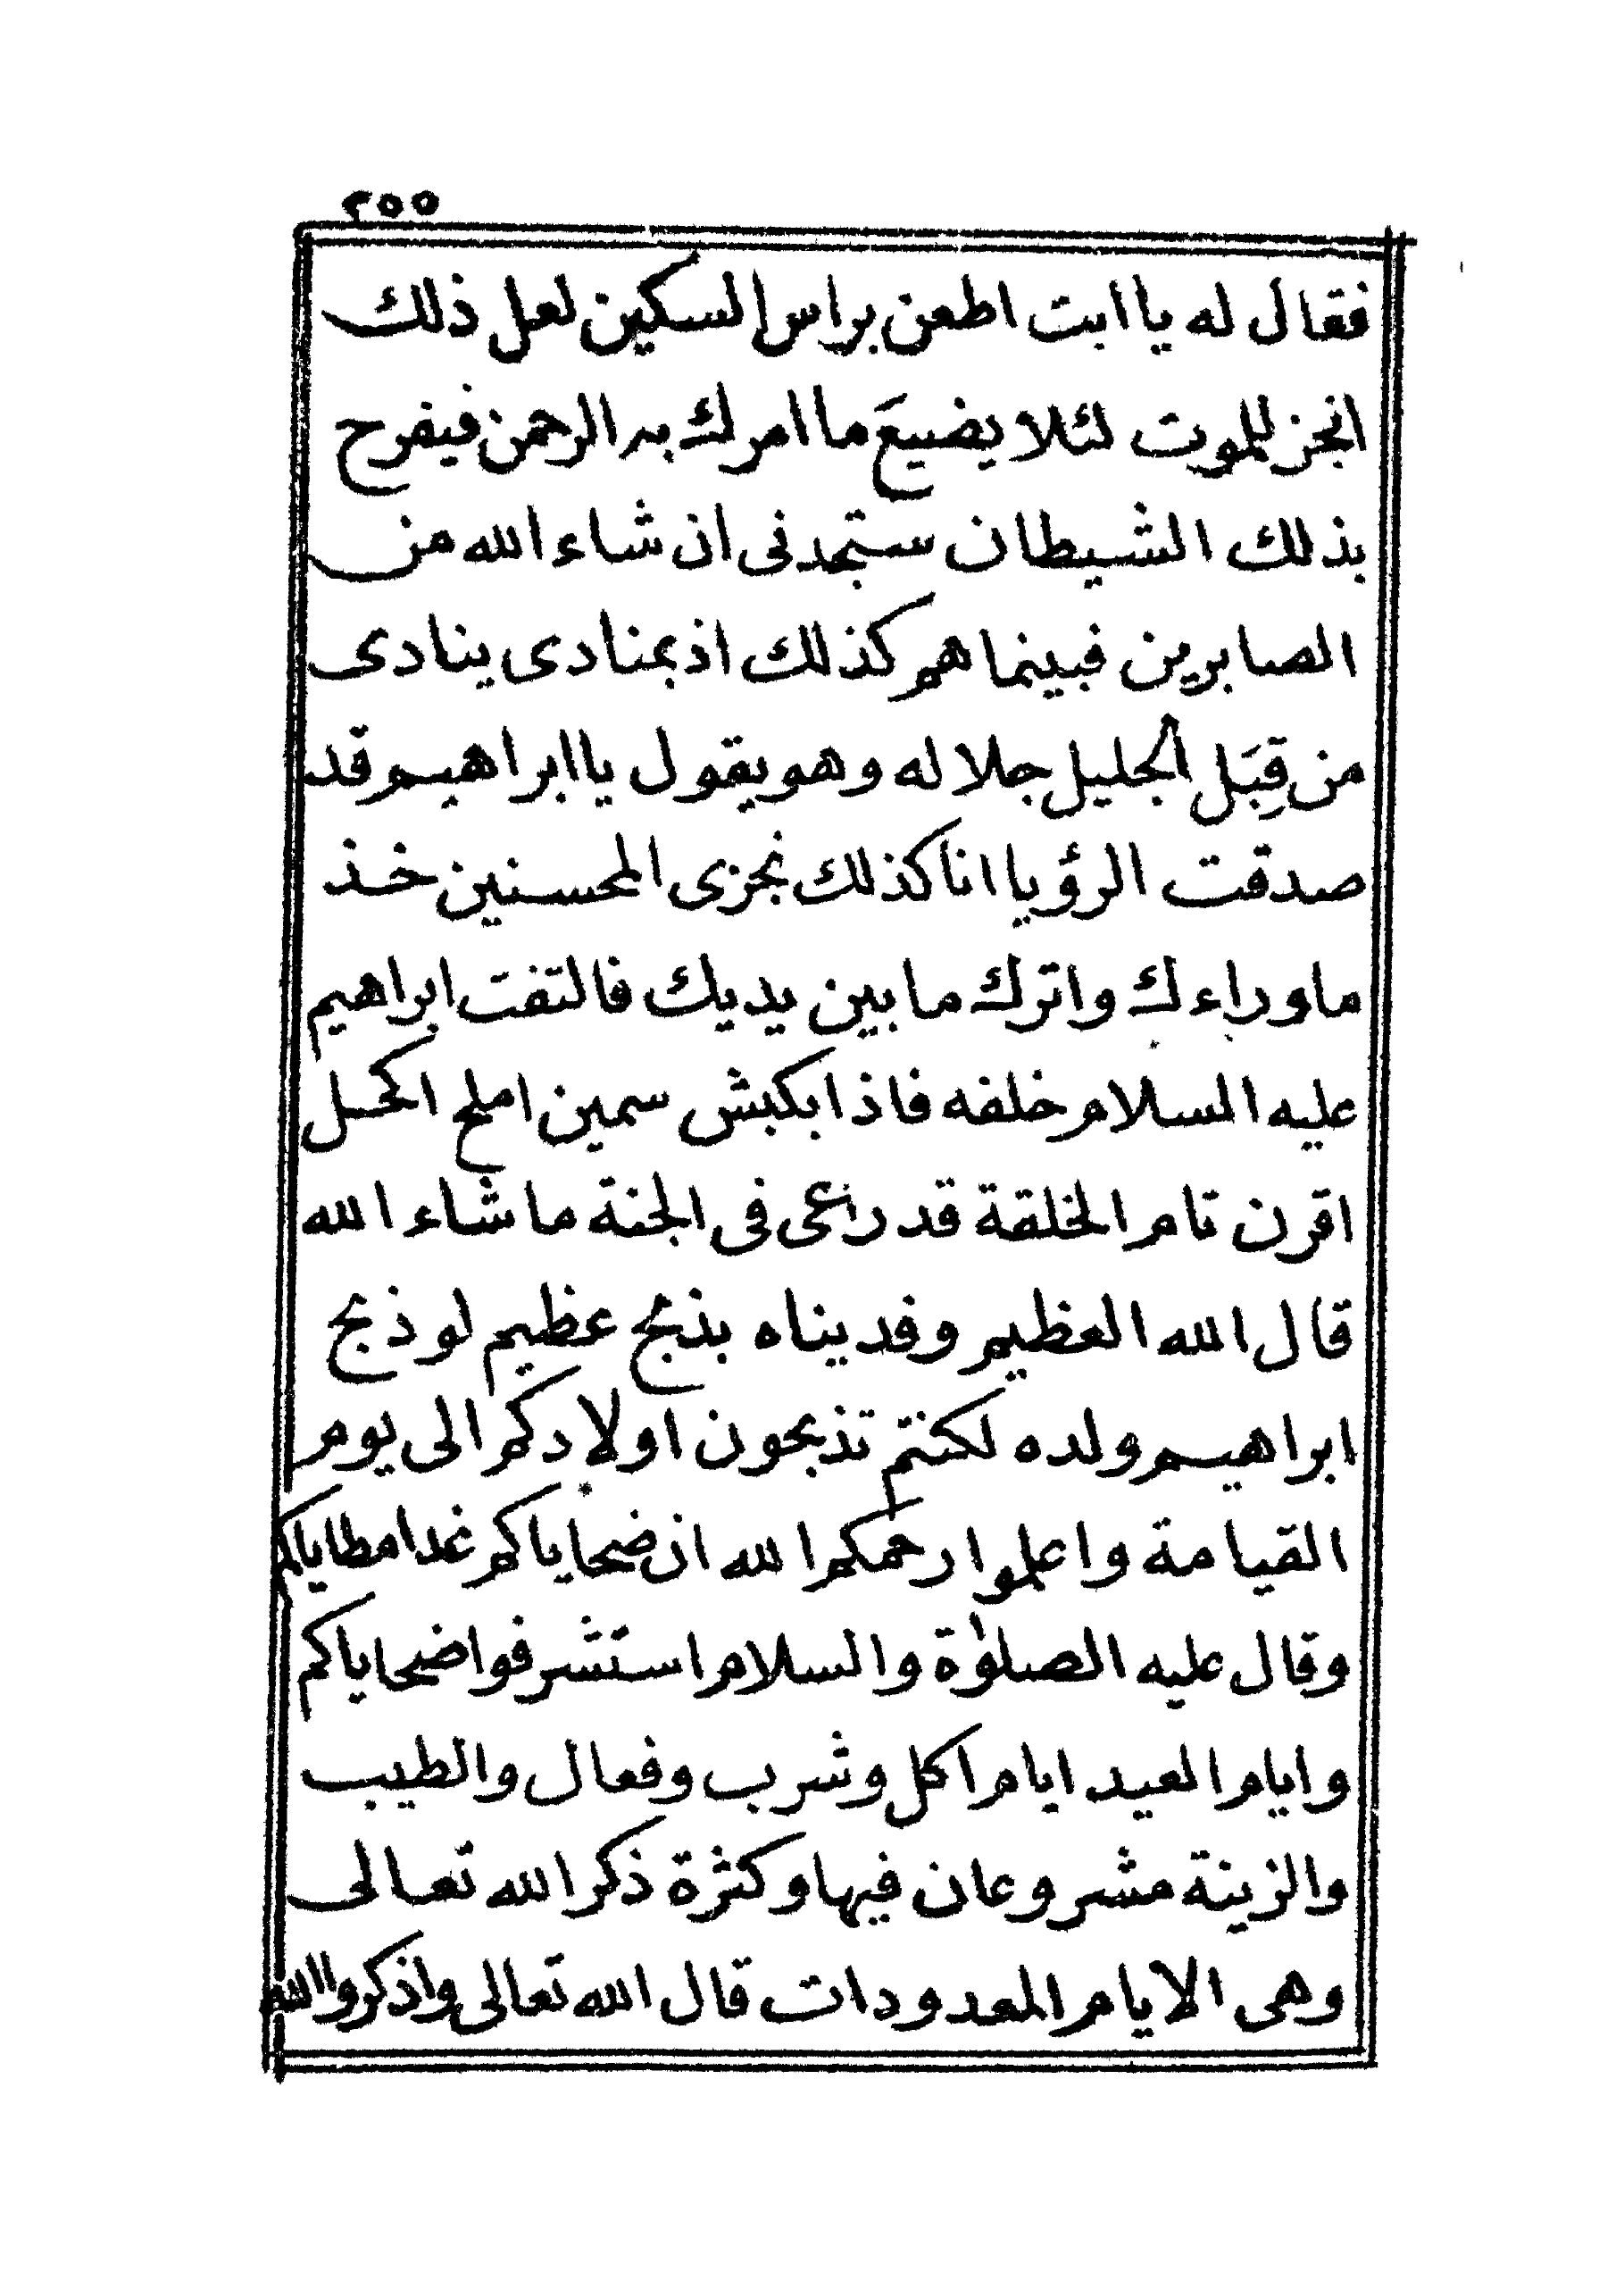 ٢٥٥
فقال له يا ابت اطعن براس السكين لعل ذلك
انجز للموت لئلا يضييع ما امرك به الرحمن فيفرح
بذلك الشيطان ستجدنى ان شاء الله من
الصابرين فبينما هم كذلك اذ بمنادى ينادى
من قِبَل الجليل جلاله وهو يقول يا ابراهيم قد
صدقت الرؤيا انا كذلك نجزى المحسنين خذ
ما وراءك واترك ما بين يديك فالتفت ابراهيم
عليه السلام خلفه فاذا بكبش سمين املح اكحل
اقرن تام الخلقة قد راعى فى الجنة ما شاء الله
قال الله العظيم وفديناه بذبح عظيم لو ذبح
ابراهيم ولده لكنتم تذبحون اولادكم الى يوم
القيامة واعلموا رحمكم الله ان ضحاياكم غدا مطاياكم
وقال عليه الصلوٰة والسلام استشرفوا ضحاياكم
وايام العيد ايام اكل وشرب وفعال والطيب
والزينة مشروعان فيها وكثرة ذكر الله تعالى
وهى الايام المعدودات قال الله تعالى واذكروا الله